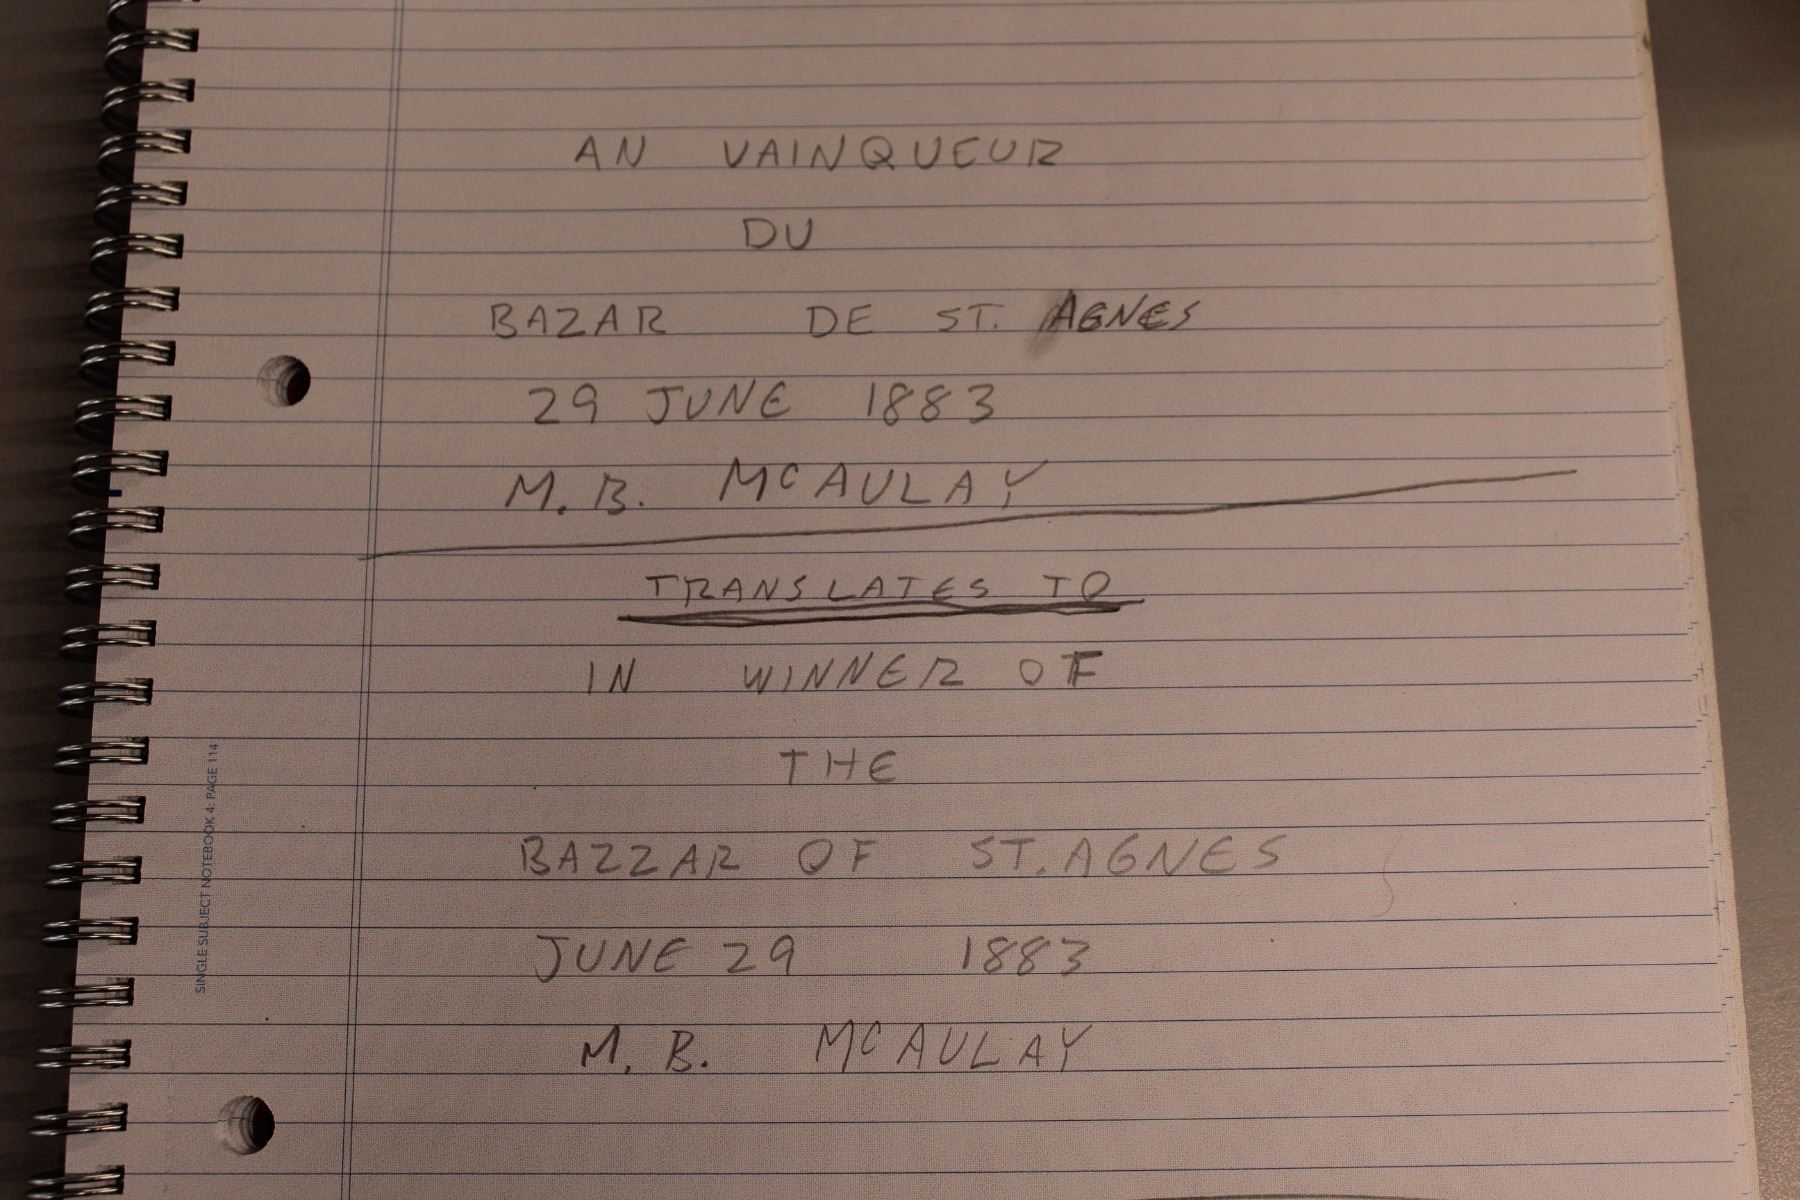 AN VAINQUEUR
DU
BAZAR DE ST. AGNES
29 JUNE 1883
M. B. MCAULAY
TRANSLATES TO
IN WINNER OF
THE
BAZZAR OF ST. AGNES
JUNE 29 1883
M. B. MCAULAY
SINGLE SUBJECT NOTEBOOK 4: PAGE 114